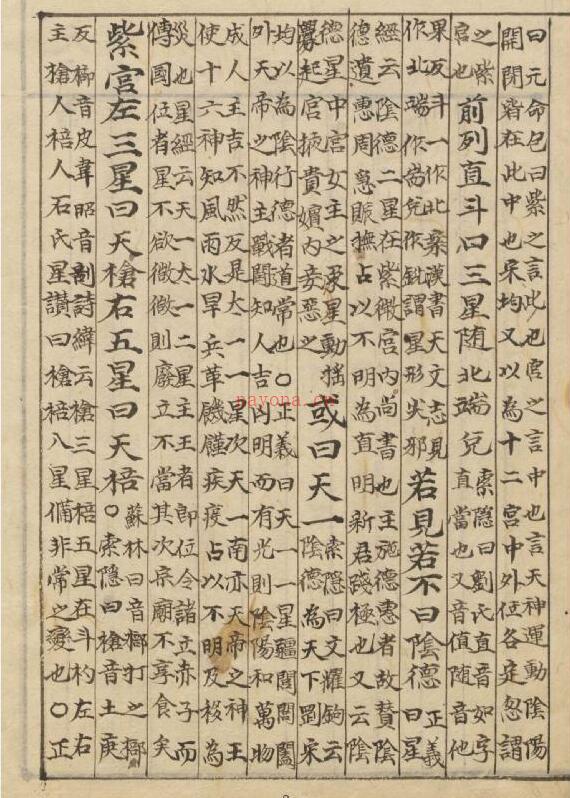 曰元命包曰紫之言此也宮之言中也言天神運動陰陽
開閉皆在此中也宋均又以為十二宮中外位各定緫謂
之紫
宮也
前列直斗口三星随北端兌
索隱曰劉氏直音如字
直當也又音值随音他
果反斗一作北案漢書天文志見
作北端作耑兌作銳謂星形尖邪
若見若不曰陰德
正義
曰星
經云陰德二星在紫微宮内尚書也主施德惠者故賛陰
德遺惠周急賑撫占以不明為直明新君踐極也又云陰
德星中宮女主之象星動揺
釁起宮掖貴嬪内妾惡之
或曰天一
索隱曰文耀鉤云
陰德為天下罡宋
均以為陰行德者道常也○正義曰天一一星疆閶閶闔
外天帝之神主戰鬪知人吉凶明而有光則陰陽和萬物
成人主吉不然反是太一一星次天一南亦天帝之神主
使十六神知風雨水旱兵革饑饉疾疫占以不明及移為
災也星經云天一太一二星主王者即位令諸立赤子而
傳國位者星不欲微微則廢立不當其次宗廟不享食矣
紫宮左三星曰天槍右五星曰天棓
蘇林曰音榔打之榔
○索隱曰槍音土庚
反棓音皮韋昭音剖詩緯云槍三星棓五星在斗杓左右
主槍人棓人石氏星讃曰槍棓八星備非常之變也○正
nayona.cn